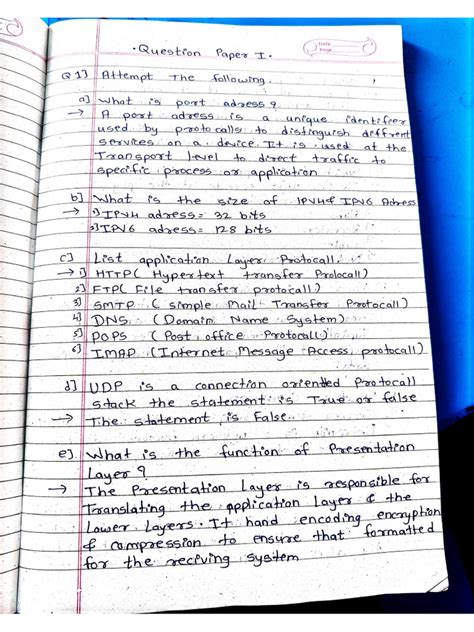 Date
Page
• Question Paper I •
Q1] Attempt The following.
a] What is port adress ?
→ A port adress is a unique identifeer
used by protocalls to distinguish diffrent
services on a device It is used at the
Transport level to direct traffic to
specific process or application
b] What is the size of IPV4 & IPV6 Adress
→ 1) IPV4 adress = 32 bits
2) IPV6 adress = 128 bits
c] List application Layer Protocall.
→ 1] HTTP ( Hypertext transfer Protocall)
2] FTP( File transfer protocall)
3] SMTP ( simple Mail Transfer Protocall)
4] DNS (Domain Name System)
5] POPS (Post office Protocall)
6] IMAP (Internet Message Access protocall)
d] UDP is a connection oriented Protocall
stack the statement is True or false
→ The statement is False..
e]. What is the function of Presentation
Layer ?
→ The Presentation Layer is responsible for
Translating the application Layer & the
Lower Layers. It hand encoding encryption
& compression to ensure that formatted
for the reciving system